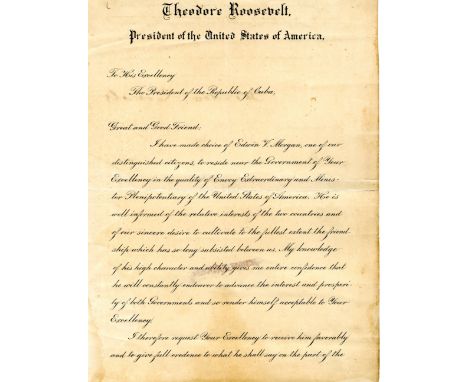 Theodore Roosevelt,
President of the United States of America,
To His Excellency
The President of the Republic of Cuba,
Great and Good Friend:
I have made choice of Edwin V. Morgan, one of our
distinguished citizens, to reside near the Government of Your
Excellency in the quality of Envoy Extraordinary and Minis-
ter Plenipotentiary of the United States of America. He is
well informed of the relative interests of the two countries and
of our sincere desire to cultivate to the fullest extent the friend-
ship which has so long subsisted between us. My knowledge
of his high character and ability gives me entire confidence that
he will constantly endeavor to advance the interest and prosperi-
ty of both Governments and so render himself acceptable to Your
Excellency.
I therefore request Your Excellency to receive him favorably
and to give full credence to what he shall say on the part of the